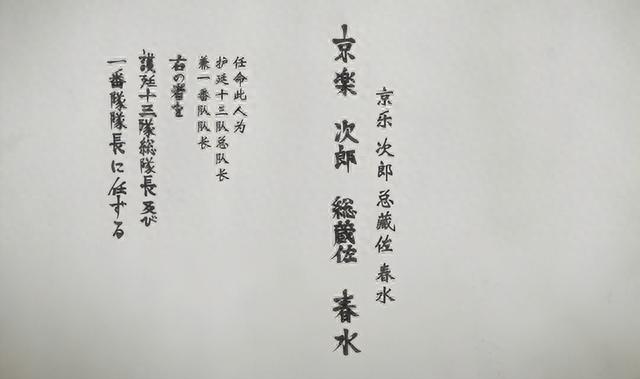 京乐 次郎 总藏佐 春水
京楽 次郎 総蔵佐 春水
任命此人为
护廷十三队总队长
兼一番队队长
右の者を
護廷十三隊総隊長及び
一番隊隊長に任ずる